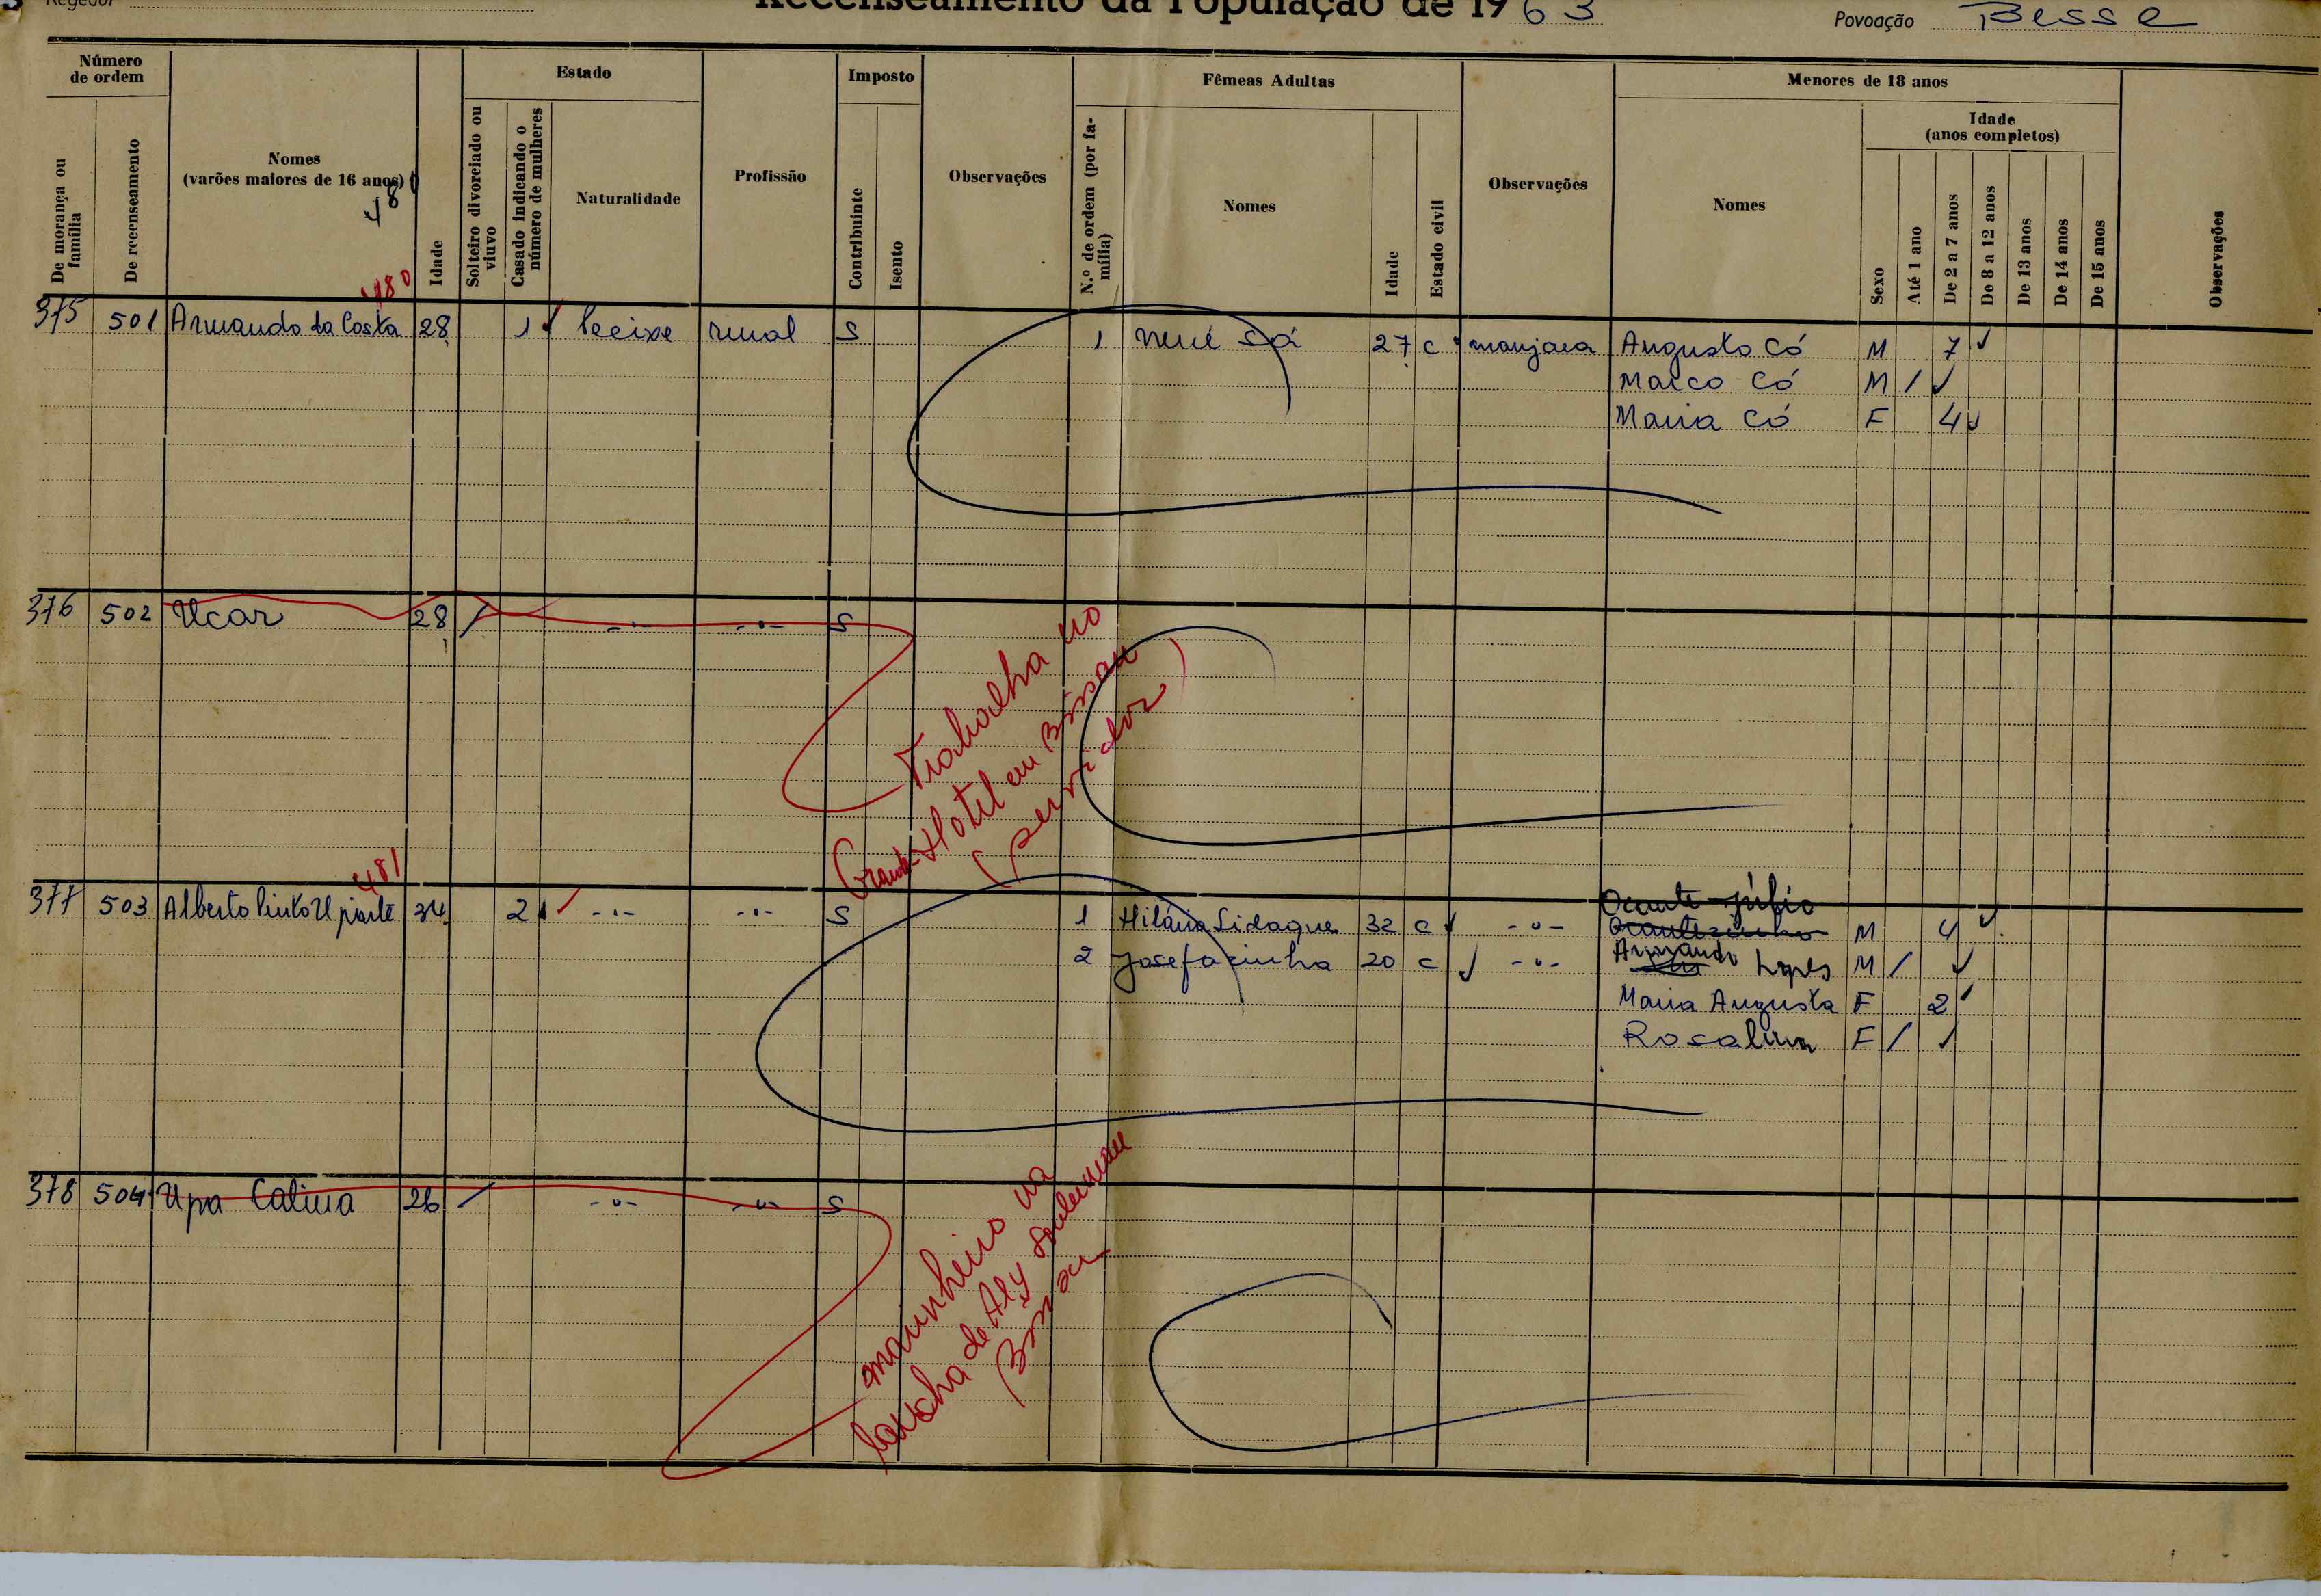 Regedor
Recenseamento da População de 1963
Povoação Besse
Número de ordem
De morança ou família
De recenseamento
Nomes
(varões maiores de 16 anos)
480
Idade
Estado
Solteiro divorciado ou viuvo
Casado indicando o número de mulheres
Naturalidade
Profissão
Imposto
Contribuinte
Isento
Observações
Fêmeas Adultas
N.º de ordem (por família)
Nomes
Idade
Estado civil
Observações
Menores de 18 anos
Nomes
Idade
(anos completos)
Sexo
Até 1 ano
De 2 a 7 anos
De 8 a 12 anos
De 13 anos
De 14 anos
De 15 anos
Observações
480
375 501 Armando da Costa 28 1 rural S 1 Nené Sá 27 c manjaca Augusto Có M 7
Marco Có M /
Maria Có F 4
376 502 Ucar 28 / -"- -"- S
Trabalha no
Grande Hotel em Bissau
(servidor)
481
377 503 Alberto Pinto 34 2 -"- -"- S 1 Hilária Sidaque 32 c -"- Ocante Júlio M 4
2 Josefazinha 20 c -"- Armando Lopes M /
Maria Augusta F 2
Rosalina F /
378 504 Upa Catina 26 / -"- -"- S
marinheiro na
lancha de Aly Souleiman
Bissau